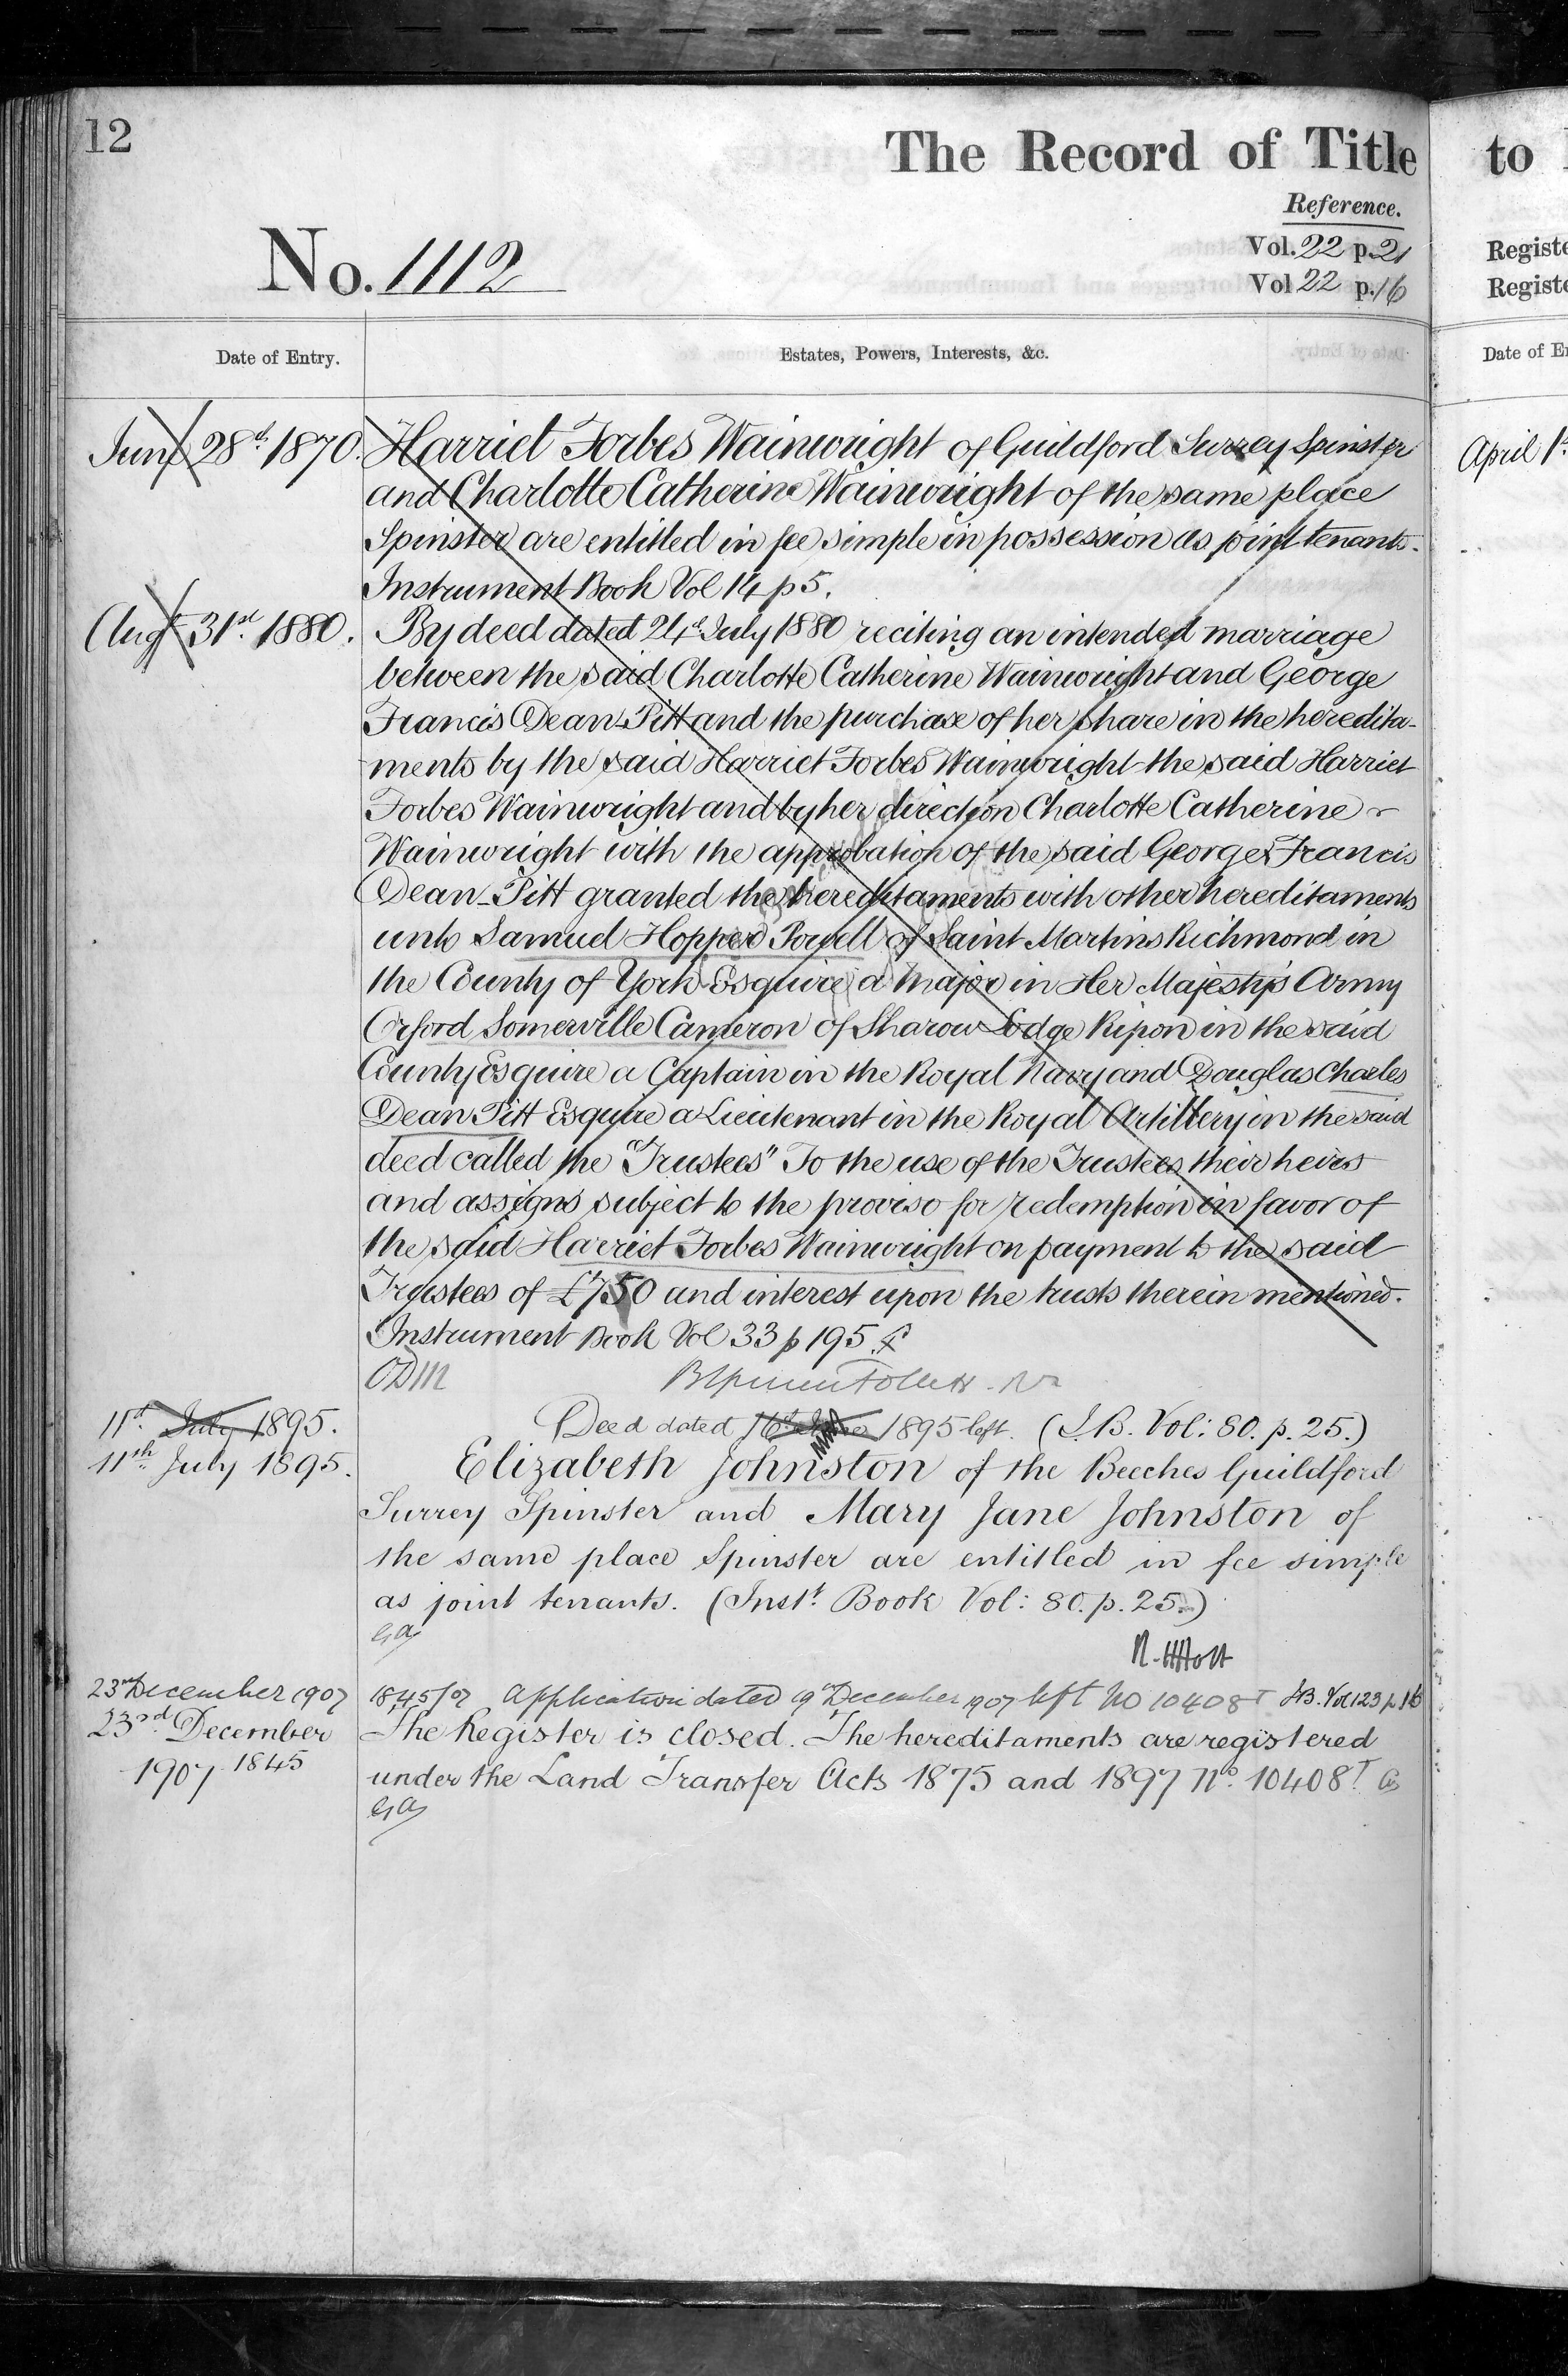 12
The Record of Title
to
Reference.
No. 1112
Vol. 22 p. 21
Vol 22 p. 16
Registe
Registe
Date of Entry.
Estates, Powers, Interests, &c.
Date of E
June 28th 1870.
Harriet Forbes Wainwright of Guildford Surrey Spinster
and Charlotte Catherine Wainwright of the same place
Spinster are entitled in fee simple in possession as joint tenants.
Instrument Book Vol 14 p 5.
April 1st
Augt 31st 1880.
By deed dated 24th July 1880 reciting an intended marriage
between the said Charlotte Catherine Wainwright and George
Francis Dean-Pitt and the purchase of her share in the heredita-
ments by the said Harriet Forbes Wainwright the said Harriet
Forbes Wainwright and by her direction Charlotte Catherine
Wainwright with the approbation of the said George Francis
Dean-Pitt granted the hereditaments with other hereditaments
unto Samuel Hopper Powell of Saint Martins Richmond in
the County of York Esquire a Major in Her Majesty's Army
Orford Somerville Cameron of Sharow Lodge Ripon in the said
County Esquire a Captain in the Royal Navy and Douglas Charles
Dean Pitt Esquire a Lieutenant in the Royal Artillery in the said
deed called the "Trustees" To the use of the Trustees their heirs
and assigns subject to the proviso for redemption in favor of
the said Harriet Forbes Wainwright on payment to the said
Trustees of £750 and interest upon the trusts therein mentioned.
Instrument Book Vol 33 p 195.
ODM
11th July 1895.
Deed dated 1895 left. (I.B. Vol: 80. p. 25.)
11th July 1895.
Elizabeth Johnston of the Beeches Guildford
Surrey Spinster and Mary Jane Johnston of
the same place Spinster are entitled in fee simple
as joint tenants. (Instt. Book Vol: 80. p. 25.)
GA
23rd December 1907
1845/07 Application dated 19th December 1907 left No 10408T I.B. Vol 123 p 16
23rd December
1907 1845
The Register is closed. The hereditaments are registered
under the Land Transfer Acts 1875 and 1897 No. 10408T
GA